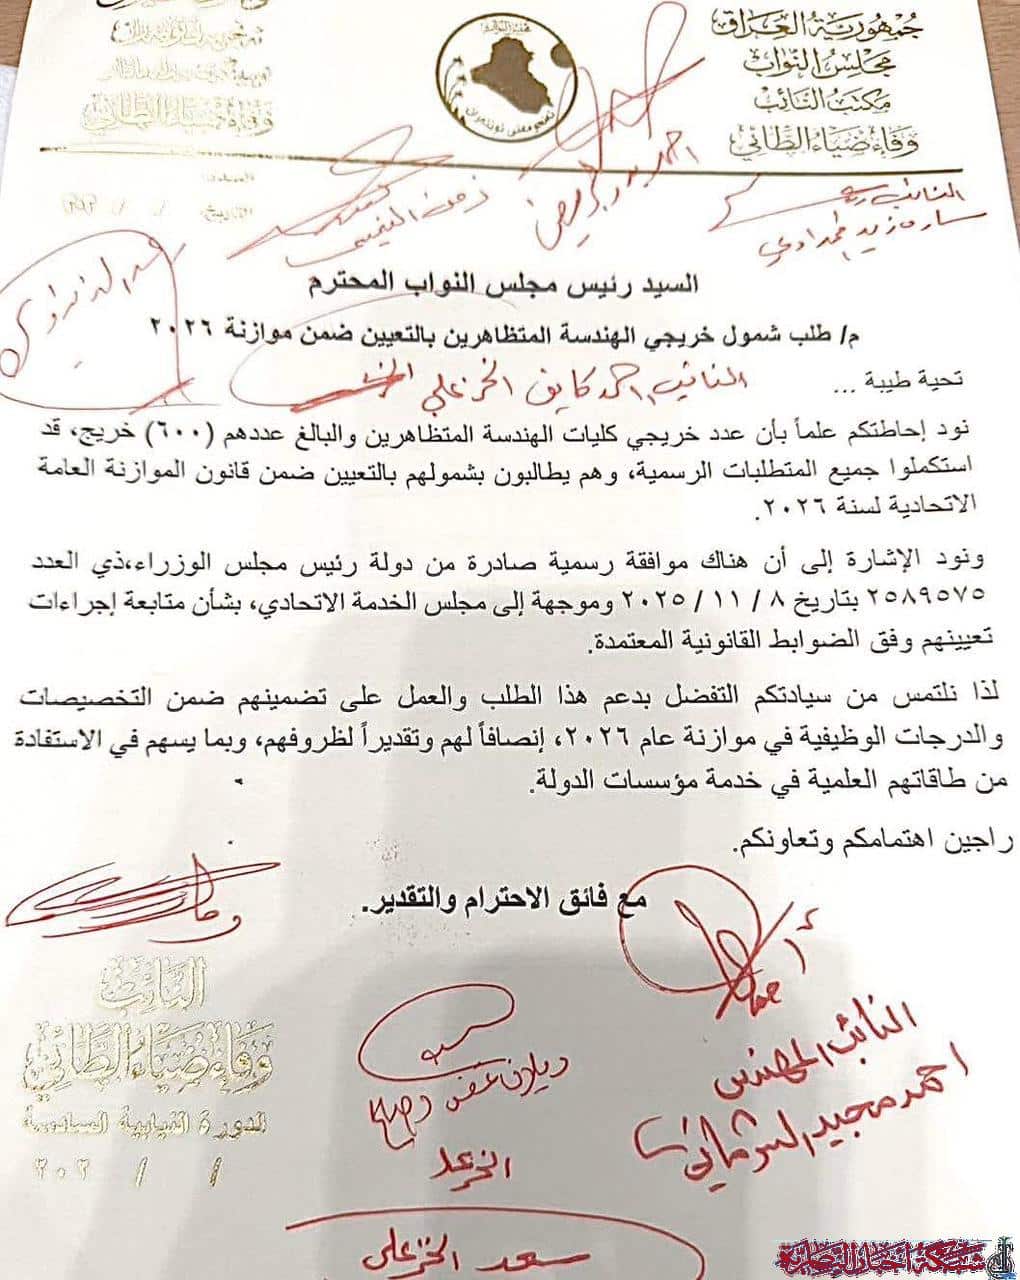 جمهورية العراق
مجلس النواب
مكتب النائب
وفاء ضياء الطائي
التاريخ: / /
النائب
السيد رئيس مجلس النواب المحترم
م/ طلب شمول خريجي الهندسة المتظاهرين بالتعيين ضمن موازنة ٢٠٢٦
تحية طيبة ...
النائب احمد كايف الخزعلي
نود إحاطتكم علماً بأن عدد خريجي كليات الهندسة المتظاهرين والبالغ عددهم (٦٠٠) خريج، قد
استكملوا جميع المتطلبات الرسمية، وهم يطالبون بشمولهم بالتعيين ضمن قانون الموازنة العامة
الاتحادية لسنة ٢٠٢٦.
ونود الإشارة إلى أن هناك موافقة رسمية صادرة من دولة رئيس مجلس الوزراء،ذي العدد
٢٥٨٩٥٧٥ بتاريخ ٨ / ١١ / ٢٠٢٥ وموجهة إلى مجلس الخدمة الاتحادي، بشأن متابعة إجراءات
تعيينهم وفق الضوابط القانونية المعتمدة.
لذا نلتمس من سيادتكم التفضل بدعم هذا الطلب والعمل على تضمينهم ضمن التخصيصات
والدرجات الوظيفية في موازنة عام ٢٠٢٦، إنصافاً لهم وتقديراً لظروفهم، وبما يسهم في الاستفادة
من طاقاتهم العلمية في خدمة مؤسسات الدولة.
راجين اهتمامكم وتعاونكم.
مع فائق الاحترام والتقدير.
النائب
وفاء ضياء الطائي
الدورة النيابية السادسة
/ / ٢٠٢
النائب المهندس
احمد مجيد الشرماني
الخزعلي
سعد الخزعلي
شبكة اخبار الناصرية